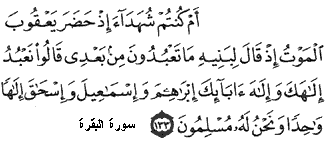 أَمْ كُنتُمْ شُهَدَآءَ إِذْ حَضَرَ يَعْقُوبَ
ٱلْمَوْتُ إِذْ قَالَ لِبَنِيهِ مَا تَعْبُدُونَ مِنۢ بَعْدِى قَالُوا۟ نَعْبُدُ
إِلَٰهَكَ وَإِلَٰهَ ءَابَآئِكَ إِبْرَٰهِـۧمَ وَإِسْمَٰعِيلَ وَإِسْحَٰقَ إِلَٰهًا
وَٰحِدًا وَنَحْنُ لَهُۥ مُسْلِمُونَ ١٣٣ سورة البقرة